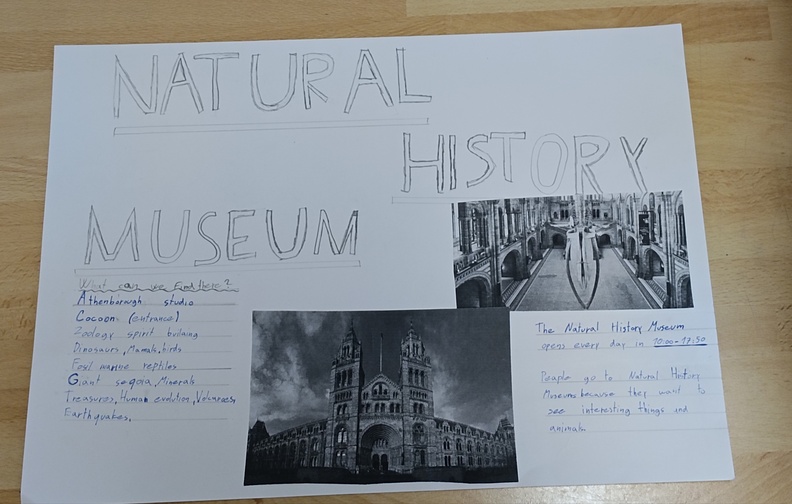 NATURAL
HISTORY
MUSEUM
What can we find there?
Athenborough studio
Cocoon (entrance)
Zoology spirit building
Dinosaurs, Mamals, birds
Fosil marine reptiles
Giant seqoia, Minerals
Treasures, Human evolution, Volcanoes,
Earthquakes.
The Natural History Museum
opens every day in 10:00-17:50
People go to Natural History
Museums because they want to
see interesting things and
animals.